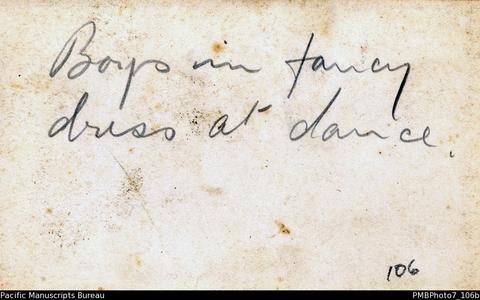 Boys in fancy
dress at dance.
106
Pacific Manuscripts Bureau
PMBPhoto7_106b